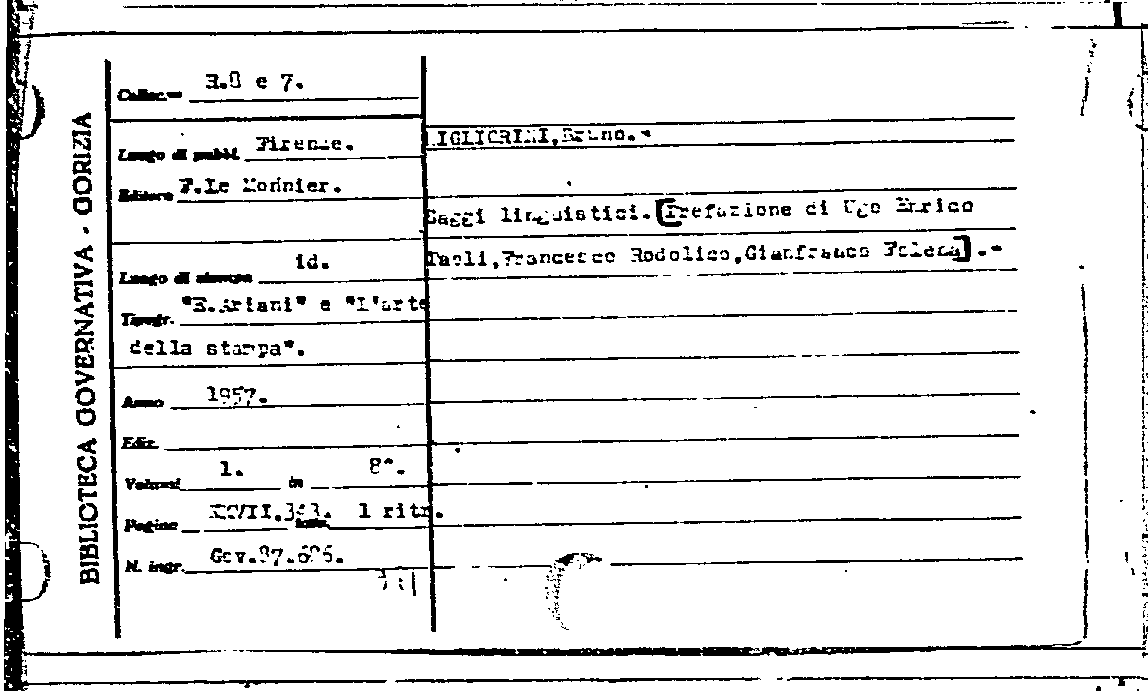 BIBLIOTECA GOVERNATIVA - GORIZIA
Colloc.ne R.8 e 7.
Luogo di pubbl. Firenze.
Editore F.Le Monnier.
Luogo di stampa id.
Tipogr. "E.Ariani" e "L'arte
della stampa".
Anno 1957.
Ediz.
Volumi 1. in 8°.
Pagine 1 ritr.
N. ingr. Gov.
MIGLIORINI,Bruno.-
Saggi linguistici. [Prefazione di Ugo Enrico
Paoli,Francesco Rodolico,Gianfranco Folena].-